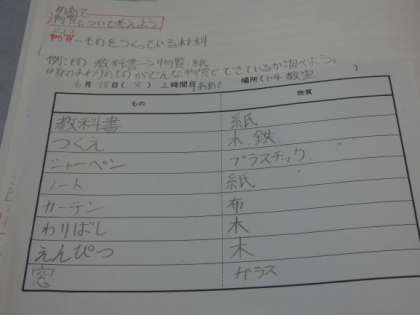 物質について考えよう
物質…ものをつくっている材料
例:もの 教科書→物質 紙
身のまわりのものがどんな物質でできているか調べよう。
6月 18日(火) 2時間目 場所(1-4 教室 )
もの 物質
教科書 紙
つくえ 木、鉄
シャーペン プラスチック
ノート 紙
カーテン 布
わりばし 木
えんぴつ 木
窓 ガラス